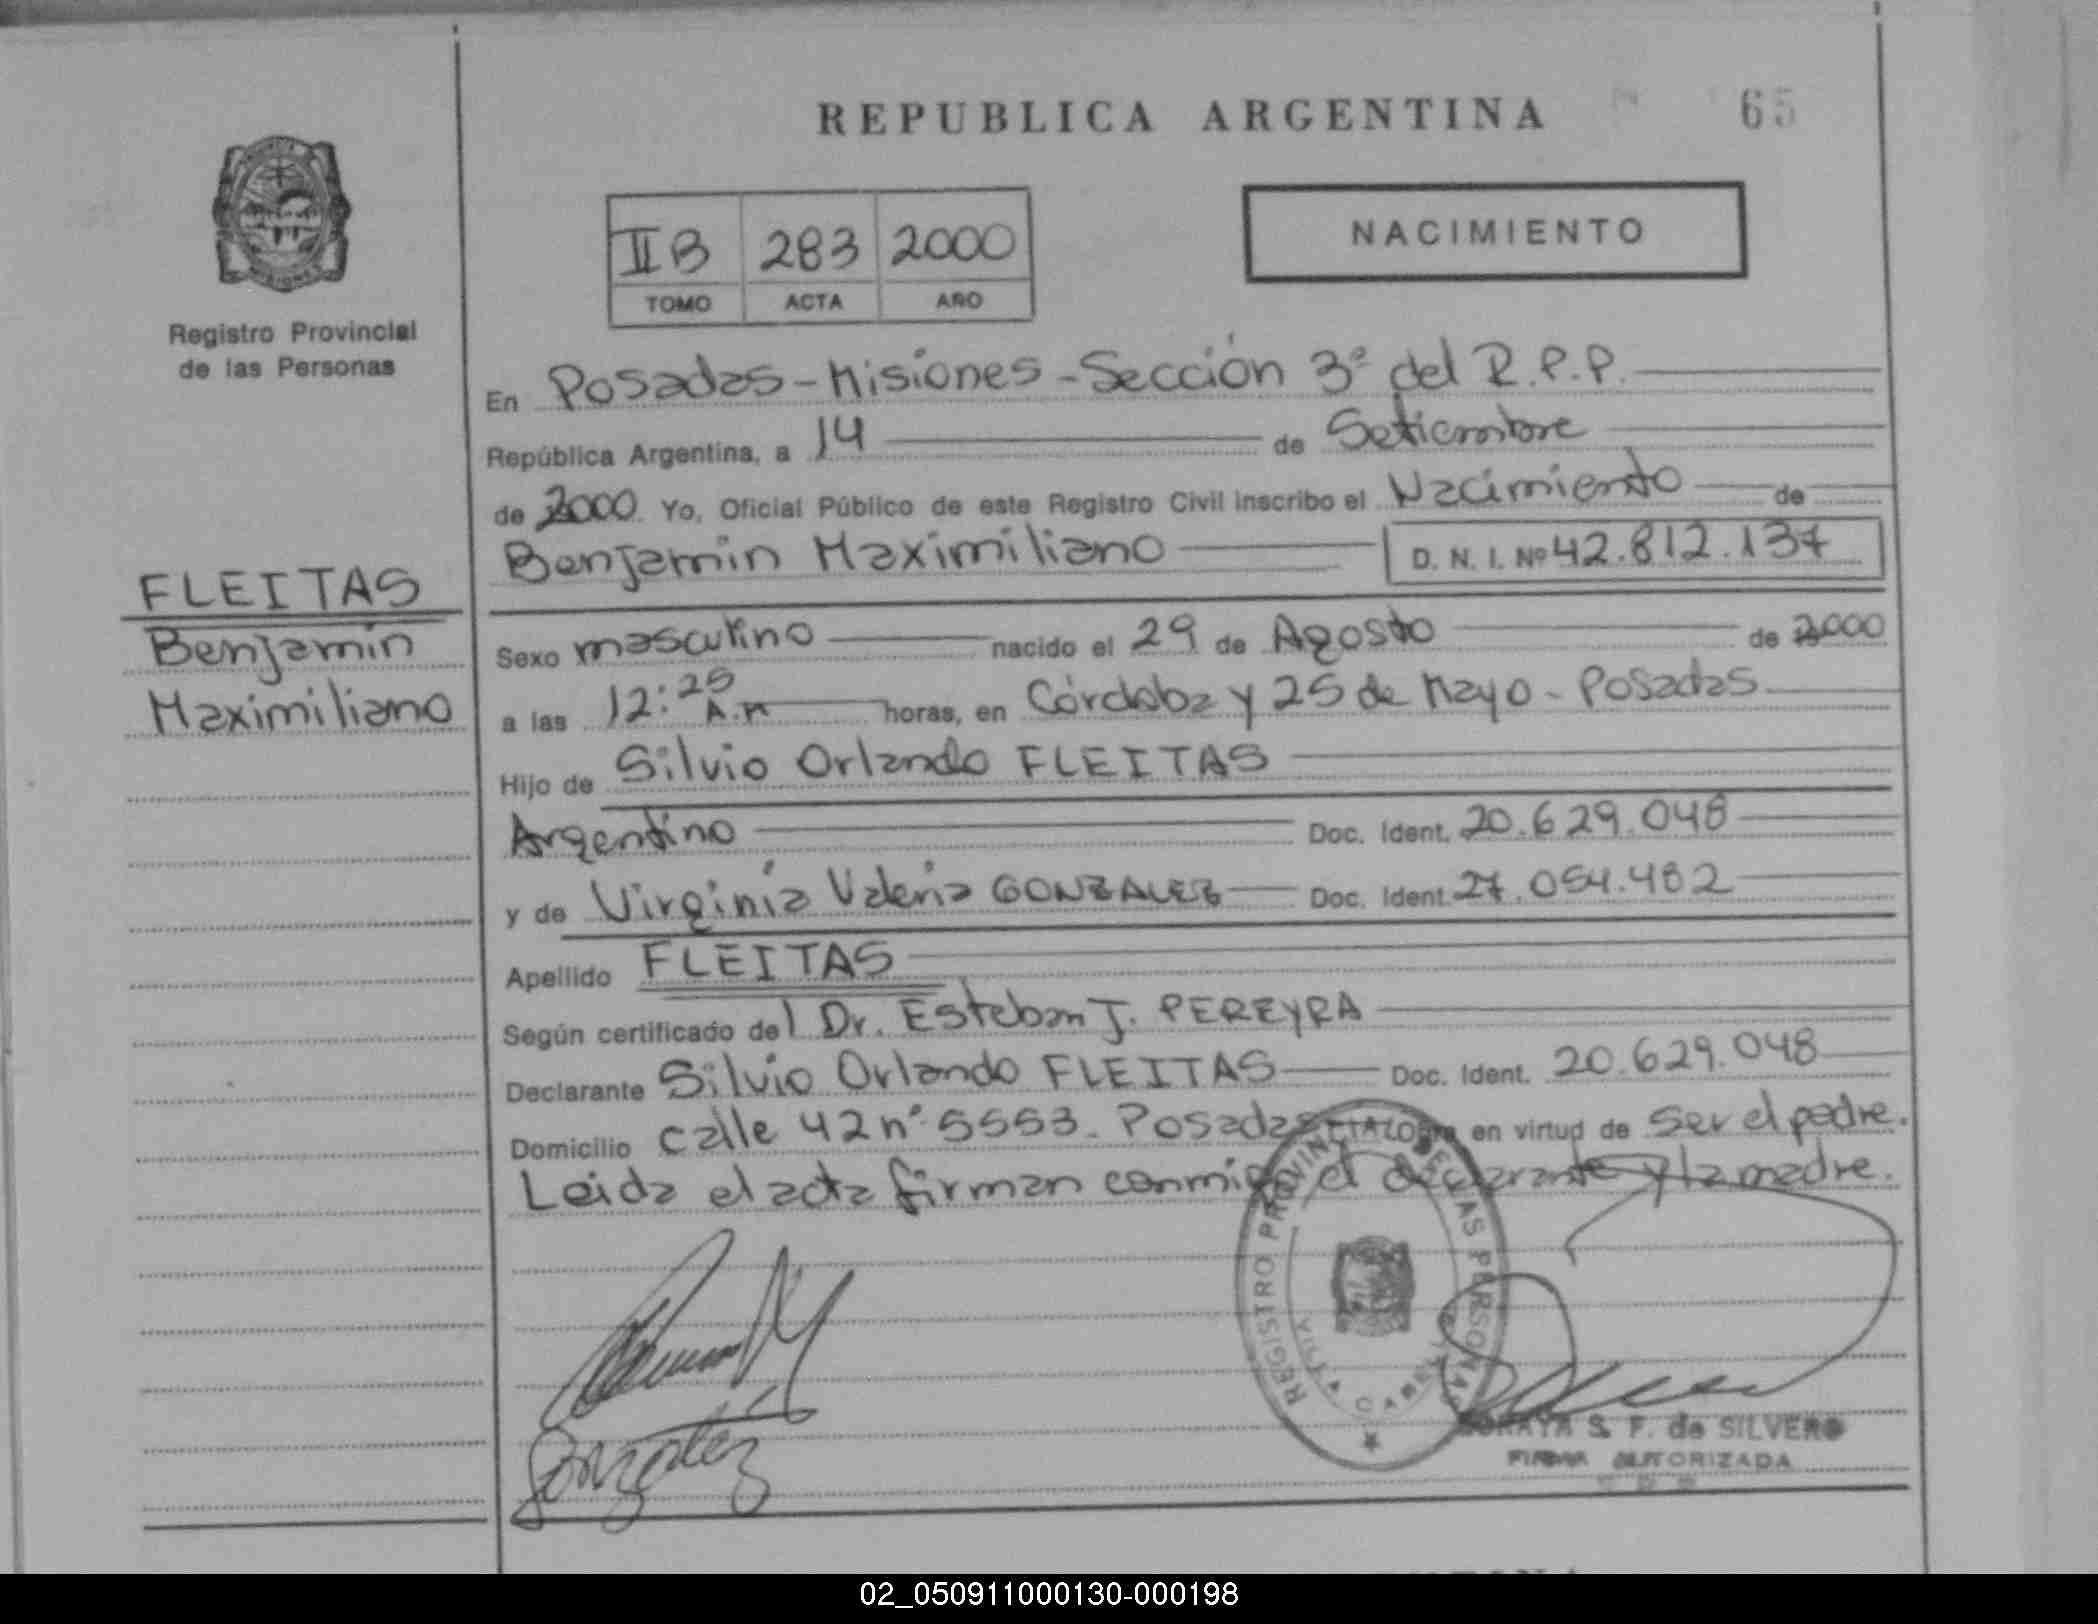 REPUBLICA ARGENTINA
65
IIB 283 2000
TOMO ACTA AÑO
NACIMIENTO
Registro Provincial
de las Personas
En Posadas - Misiones - Sección 3ª del R.P.P.
República Argentina, a 14 de Setiembre
de 2000. Yo, Oficial Público de este Registro Civil inscribo el Nacimiento de
Benjamin Maximiliano D. N. I. Nº 42.812.137
FLEITAS
Benjamin
Maximiliano
Sexo masculino nacido el 29 de Agosto de 2000
a las 12:25 A.M horas, en Córdoba y 25 de Mayo - Posadas
Hijo de Silvio Orlando FLEITAS
Argentino Doc. Ident. 20.629.048
y de Virginia Valeria GONZALEZ Doc. Ident. 27.054.482
Apellido FLEITAS
Según certificado del Dr. Esteban J. PEREYRA
Declarante Silvio Orlando FLEITAS Doc. Ident. 20.629.048
Domicilio calle 42 nº 5553. Posadas en virtud de ser el padre.
Leida el acta firman conmigo el declarante y la madre.
REGISTRO PROVINCIAL DE LAS PERSONAS
Gonzalez
SORAYA S. F. de SILVERO
FIRMA AUTORIZADA
02_050911000130-000198